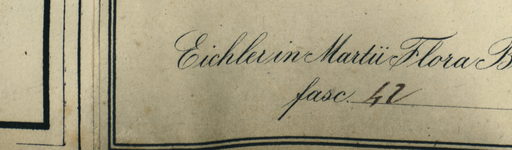 Eichler in Martii Flora B
fasc. 42